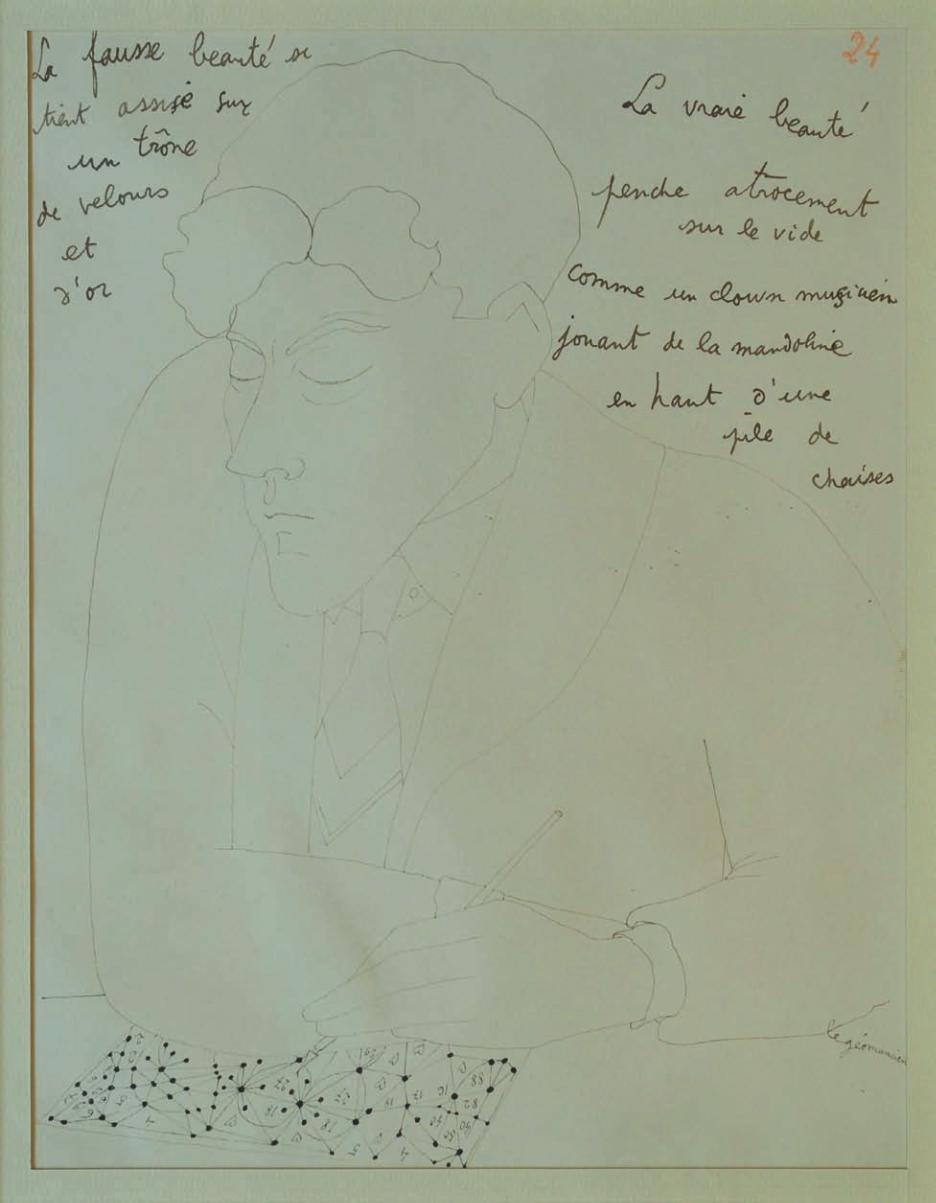 La fausse beauté se
tient assise sur
un trône
de velours
et
d'or
24
La vraie beauté
penche atrocement
sur le vide
comme un clown musicien
jouant de la mandoline
en haut d'une
pile de
chaises
le géomancien